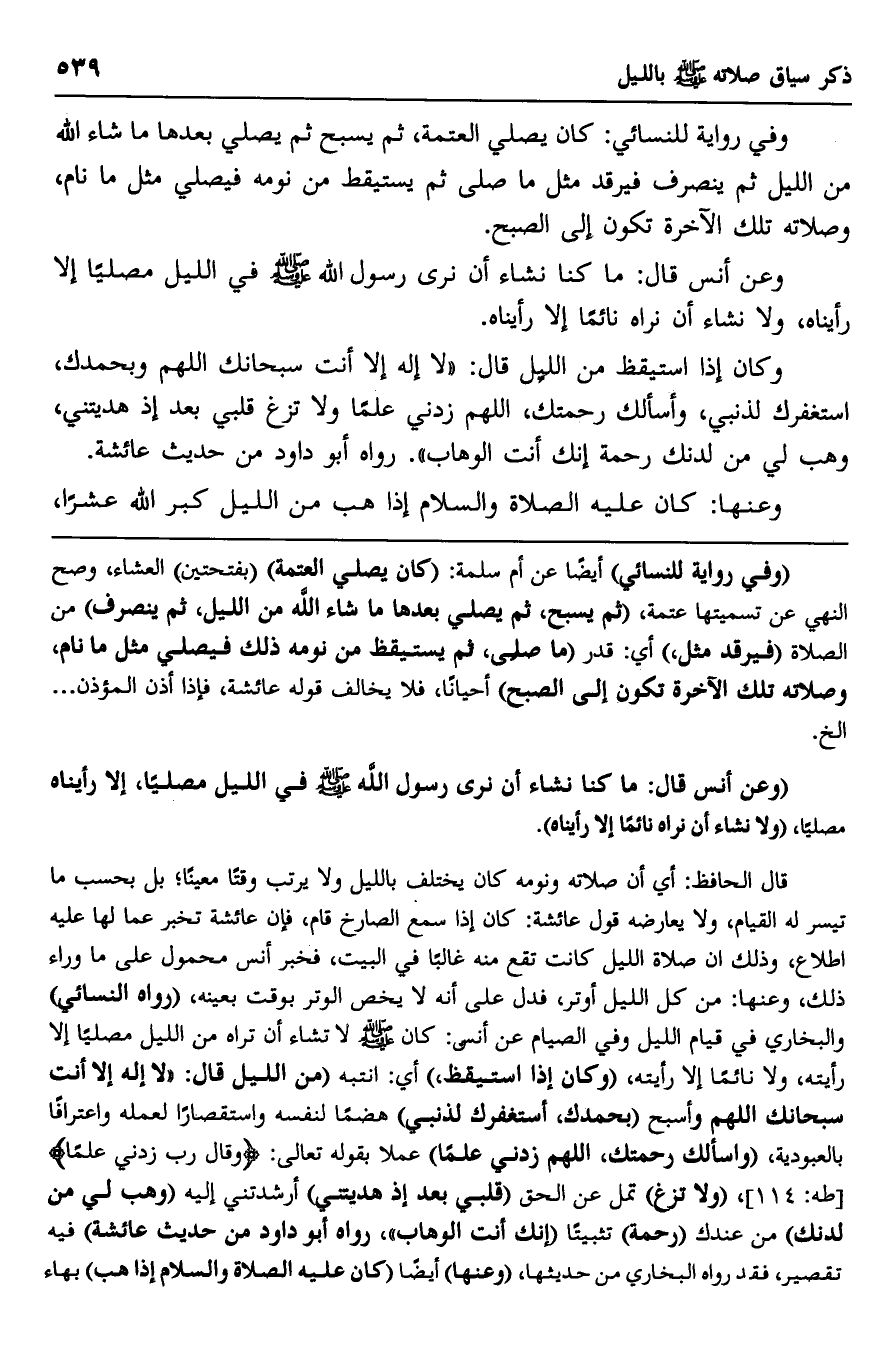 ذكر سياق صلاته ﷺ بالليل ٥٣٩
وفي رواية للنسائي: كان يصلي العتمة، ثم يسبح ثم يصلي بعدها ما شاء الله
من الليل ثم ينصرف فيرقد مثل ما صلى ثم يستيقط من نومه فيصلي مثل ما نام،
وصلاته تلك الآخرة تكون إلى الصبح.
وعن أنس قال: ما كنا نشاء أن نرى رسول الله ﷺ في الليل مصليًا إلا
رأيناه، ولا نشاء أن نراه نائمًا إلا رأيناه.
وكان إذا استيقظ من الليل قال: «لا إله إلا أنت سبحانك اللهم وبحمدك،
استغفرك لذنبي، وأسألك رحمتك، اللهم زدني علمًا ولا تزغ قلبي بعد إذ هديتني،
وهب لي من لدنك رحمة إنك أنت الوهاب». رواه أبو داود من حديث عائشة.
وعنها: كان عليه الصلاة والسلام إذا هب من الليل كبر الله عشرًا،
(وفي رواية للنسائي) أيضًا عن أم سلمة: (كان يصلي العتمة) (بفتحتين) العشاء، وصح
النهي عن تسميتها عتمة، (ثم يسبح، ثم يصلي بعدها ما شاء اللَّه من الليل، ثم ينصرف) من
الصلاة (فيرقد مثل،) أي: قدر (ما صلى، ثم يستيقظ من نومه ذلك فيصلي مثل ما نام،
وصلاته تلك الآخرة تكون إلى الصبح) أحيانًا، فلا يخالف قوله عائشة، فإذا أذن المؤذن...
الخ.
(وعن أنس قال: ما كنا نشاء أن نرى رسول اللَّه ﷺ في الليل مصليًا، إلا رأيناه
مصليًا، (ولا نشاء أن نراه نائمًا إلا رأيناه).
قال الحافظ: أي أن صلاته ونومه كان يختلف بالليل ولا يرتب وقتًا معينًا؛ بل بحسب ما
تيسر له القيام، ولا يعارضه قول عائشة: كان إذا سمع الصارخ قام، فإن عائشة تخبر عما لها عليه
اطلاع، وذلك ان صلاة الليل كانت تقع منه غالبًا في البيت، فخبر أنس محمول على ما وراء
ذلك، وعنها: من كل الليل أوتر، فدل على أنه لا يخص الوتر بوقت بعينه، (رواه النسائي)
والبخاري في قيام الليل وفي الصيام عن أنس: كان ﷺ لا تشاء أن تراه من الليل مصليًا إلا
رأيته، ولا نائمًا إلا رأيته، (وكان إذا استيقظ،) أي: انتبه (من الليل قال: «لا إله إلا أنت
سبحانك اللهم وأسبح (بحمدك، أستغفرك لذنبي) هضمًا لنفسه واستقصارًا لعمله واعترافًا
بالعبودية، (واسألك رحمتك، اللهم زدني علمًا) عملا بقوله تعالى: ﴿وقال رب زدني علمًا﴾
[طه: ١١٤]، (ولا تزغ) تمل عن الحق (قلبي بعد إذ هديتني) أرشدتني إليه (وهب لي من
لدنك) من عندك (رحمة) تثبيتًا (إنك أنت الوهاب»، رواه أبو داود من حديث عائشة) فيه
تقصير، فقد رواه البخاري من حديثها، (وعنها) أيضًا (كان عليه الصلاة والسلام إذا هب) بهاء